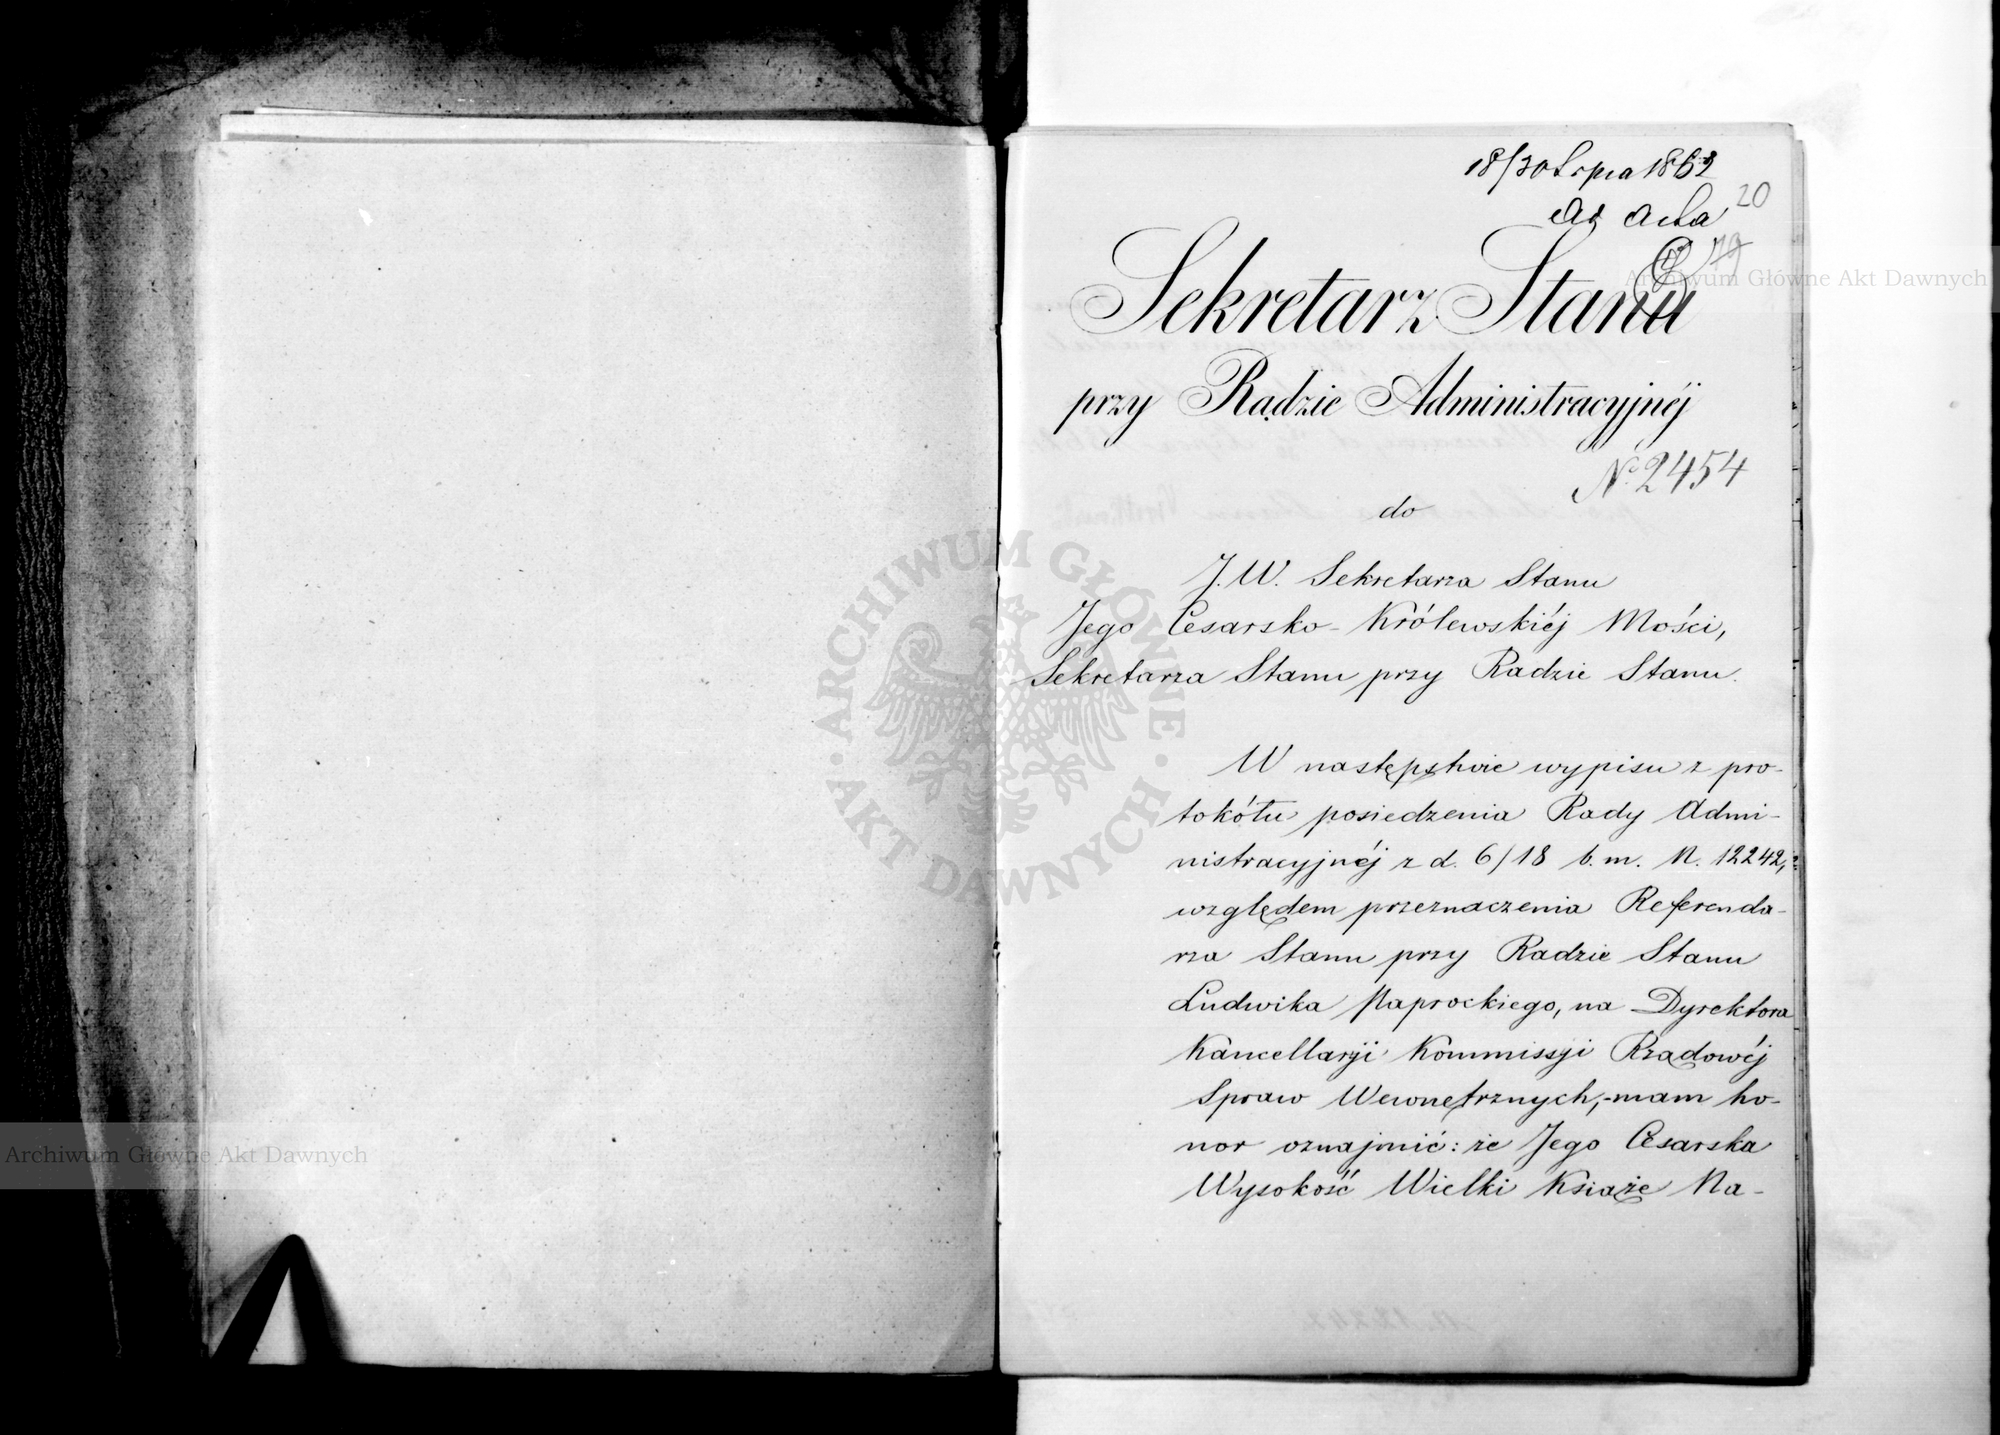 18/30 Lipca 1862
Ad Acta
20
19
Sekretarz Stanu
przy Radzie Administracyjnéj
N. 2454
do
J.W. Sekretarza Stanu
Jego Cesarsko-Królewskiéj Mości,
Sekretarza Stanu przy Radzie Stanu.
W następstwie wypisu z pro-
tokółu posiedzenia Rady Admi-
nistracyjnéj z d. 6/18 b.m. N. 12242,
względem przeznaczenia Referenda-
rza Stanu przy Radzie Stanu
Ludwika Naprockiego, na Dyrektora
Kancellaryi Kommissyi Rządowéj
Spraw Wewnętrznych,-mam ho-
nor oznajmić: że Jego Cesarska
Wysokość Wielki Książe Na-
Archiwum Główne Akt Dawnych
Archiwum Główne Akt Dawnych
ARCHIWUM GŁÓWNE AKT DAWNYCH